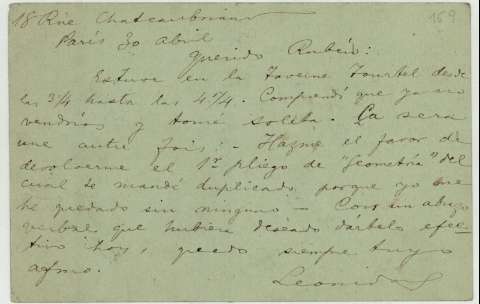 18 Rue Chateaubriand
169
París 30 Abril
Querido Rubén:
Estuve en la Taverne Tourtel desde
las 3¾ hasta las 4¼. Comprendí que ya no
vendrías y tomé soleta. Ça sera
une autre fois: - Hazme el favor de
devolverme el 1er pliego de "Geometría" del
cual te mandé duplicado, porque yo me
he quedado sin ninguno — Con un abrazo
verbal que hubiera deseado dártelo efec-
tivo hoy, quedo siempre tuyo
afmo.
Leonidas